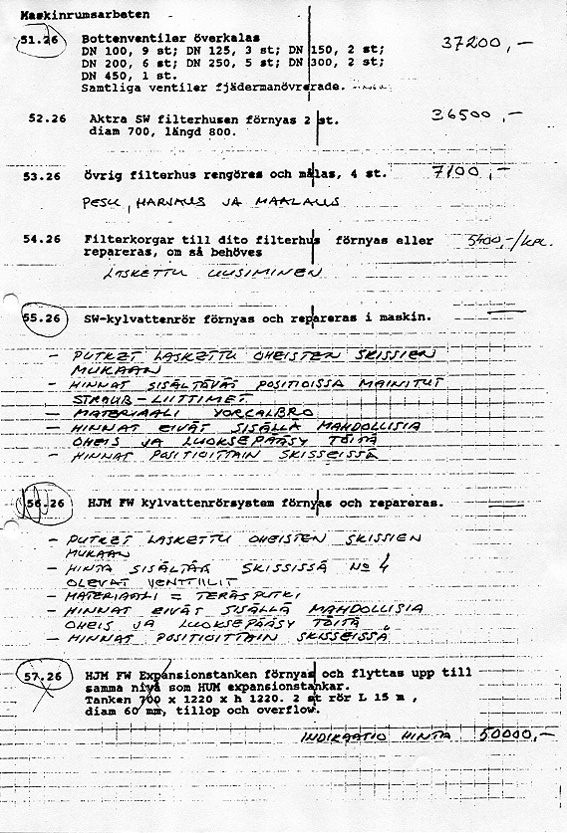 Maskinrumsarbeten
51.26 Bottenventiler överkalas 37200,-
DN 100, 9 st; DN 125, 3 st; DN 150, 2 st;
DN 200, 6 st; DN 250, 5 st; DN 300, 2 st;
DN 450, 1 st.
Samtliga ventiler fjädermanövrerade.
52.26 Aktra SW filterhusen förnyas 2 st. 36500,-
diam 700, längd 800.
53.26 Övrig filterhus rengöres och målas, 4 st. 7100,-
PESU, HARJAUS JA MAALAUS
54.26 Filterkorgar till dito filterhus förnyas eller 5400,-/KPL.
repareras, om så behöves
LASKETTU UUSIMINEN
55.26 SW-kylvattenrör förnyas och repareras i maskin.
- PUTKET LASKETTU OHEISTEN SKISSIEN
MUKAAN
- HINNAT SISÄLTÄVÄT POSITIOISSA MAINITUT
STRAUB-LIITTIMET
- MATERIAALI YORCALBRO
- HINNAT EIVÄT SISÄLLÄ MAHDOLLISIA
OHEIS JA LUOKSEPÄÄSY TÖITÄ
- HINNAT POSITIOITTAIN SKISSEISSÄ
56.26 HJM FW kylvattenrörsystem förnyas och repareras.
- PUTKET LASKETTU OHEISTEN SKISSIEN
MUKAAN
- HINTA SISÄLTÄÄ SKISSISSÄ No 4
OLEVAT VENTTIILIT
- MATERIAALI = TERÄSPUTKI
- HINNAT EIVÄT SISÄLLÄ MAHDOLLISIA
OHEIS JA LUOKSEPÄÄSY TÖITÄ
- HINNAT POSITIOITTAIN SKISSEISSÄ
57.26 HJM FW Expansionstanken förnyas och flyttas upp till
samma nivå som HUM expansionstankar.
Tanken 700 x 1220 x h 1220. 2 st rör L 15 m ,
diam 60 mm, tillop och overflow.
INDIKAATIO HINTA 50000,-